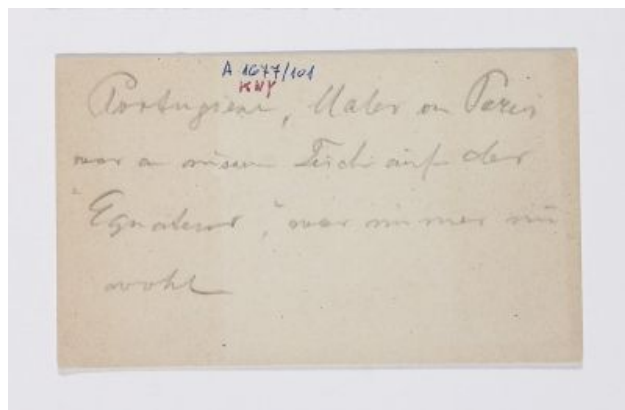 A 1677/101
KNY
Portugiese, Maler in Paris
war an unserm Tisch auf der
"Equateur", war immer
wohl